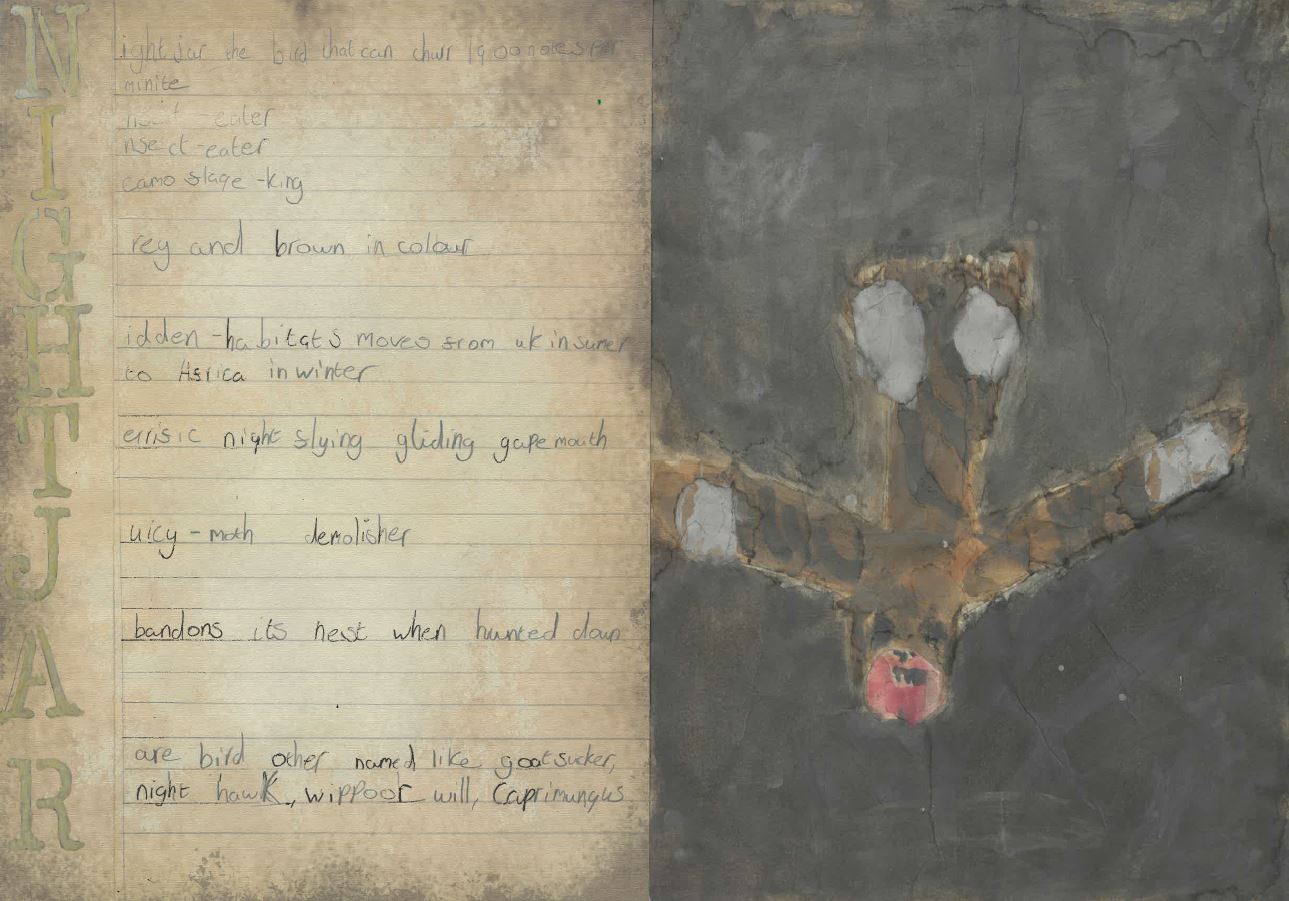 N
I
G
H
T
J
A
R
ightjar the bird that can churr 1900 notes per
minite
eater
nsect-eater
camoflage-king
rey and brown in colour
idden-habitats moves from uk in sumer
to Africa in winter
errific night flying gliding gape mouth
uicy-moth demolisher
bandons its nest when hunted down
are bird other named like goatsucker,
night hawk, wippoor will, Caprimungus